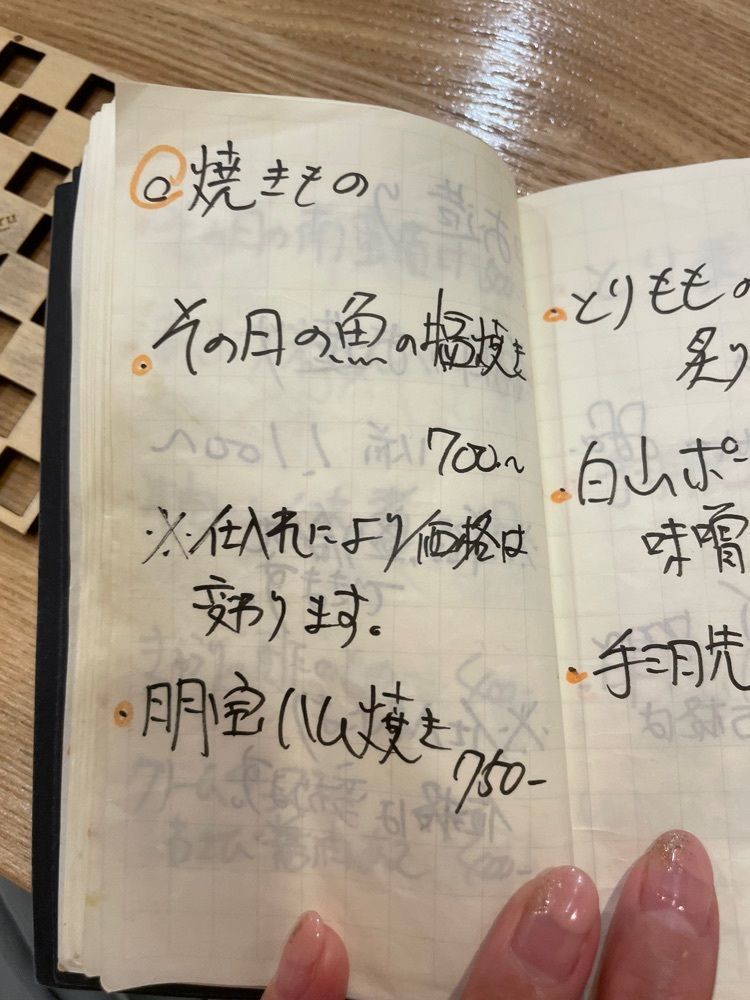 焼きもの
・その日の魚の塩焼き
700〜
※仕入れにより価格は
変わります。
・明宝ハム焼き
750-
・とりももの
炙り
・白山ポー
味噌
・手羽先